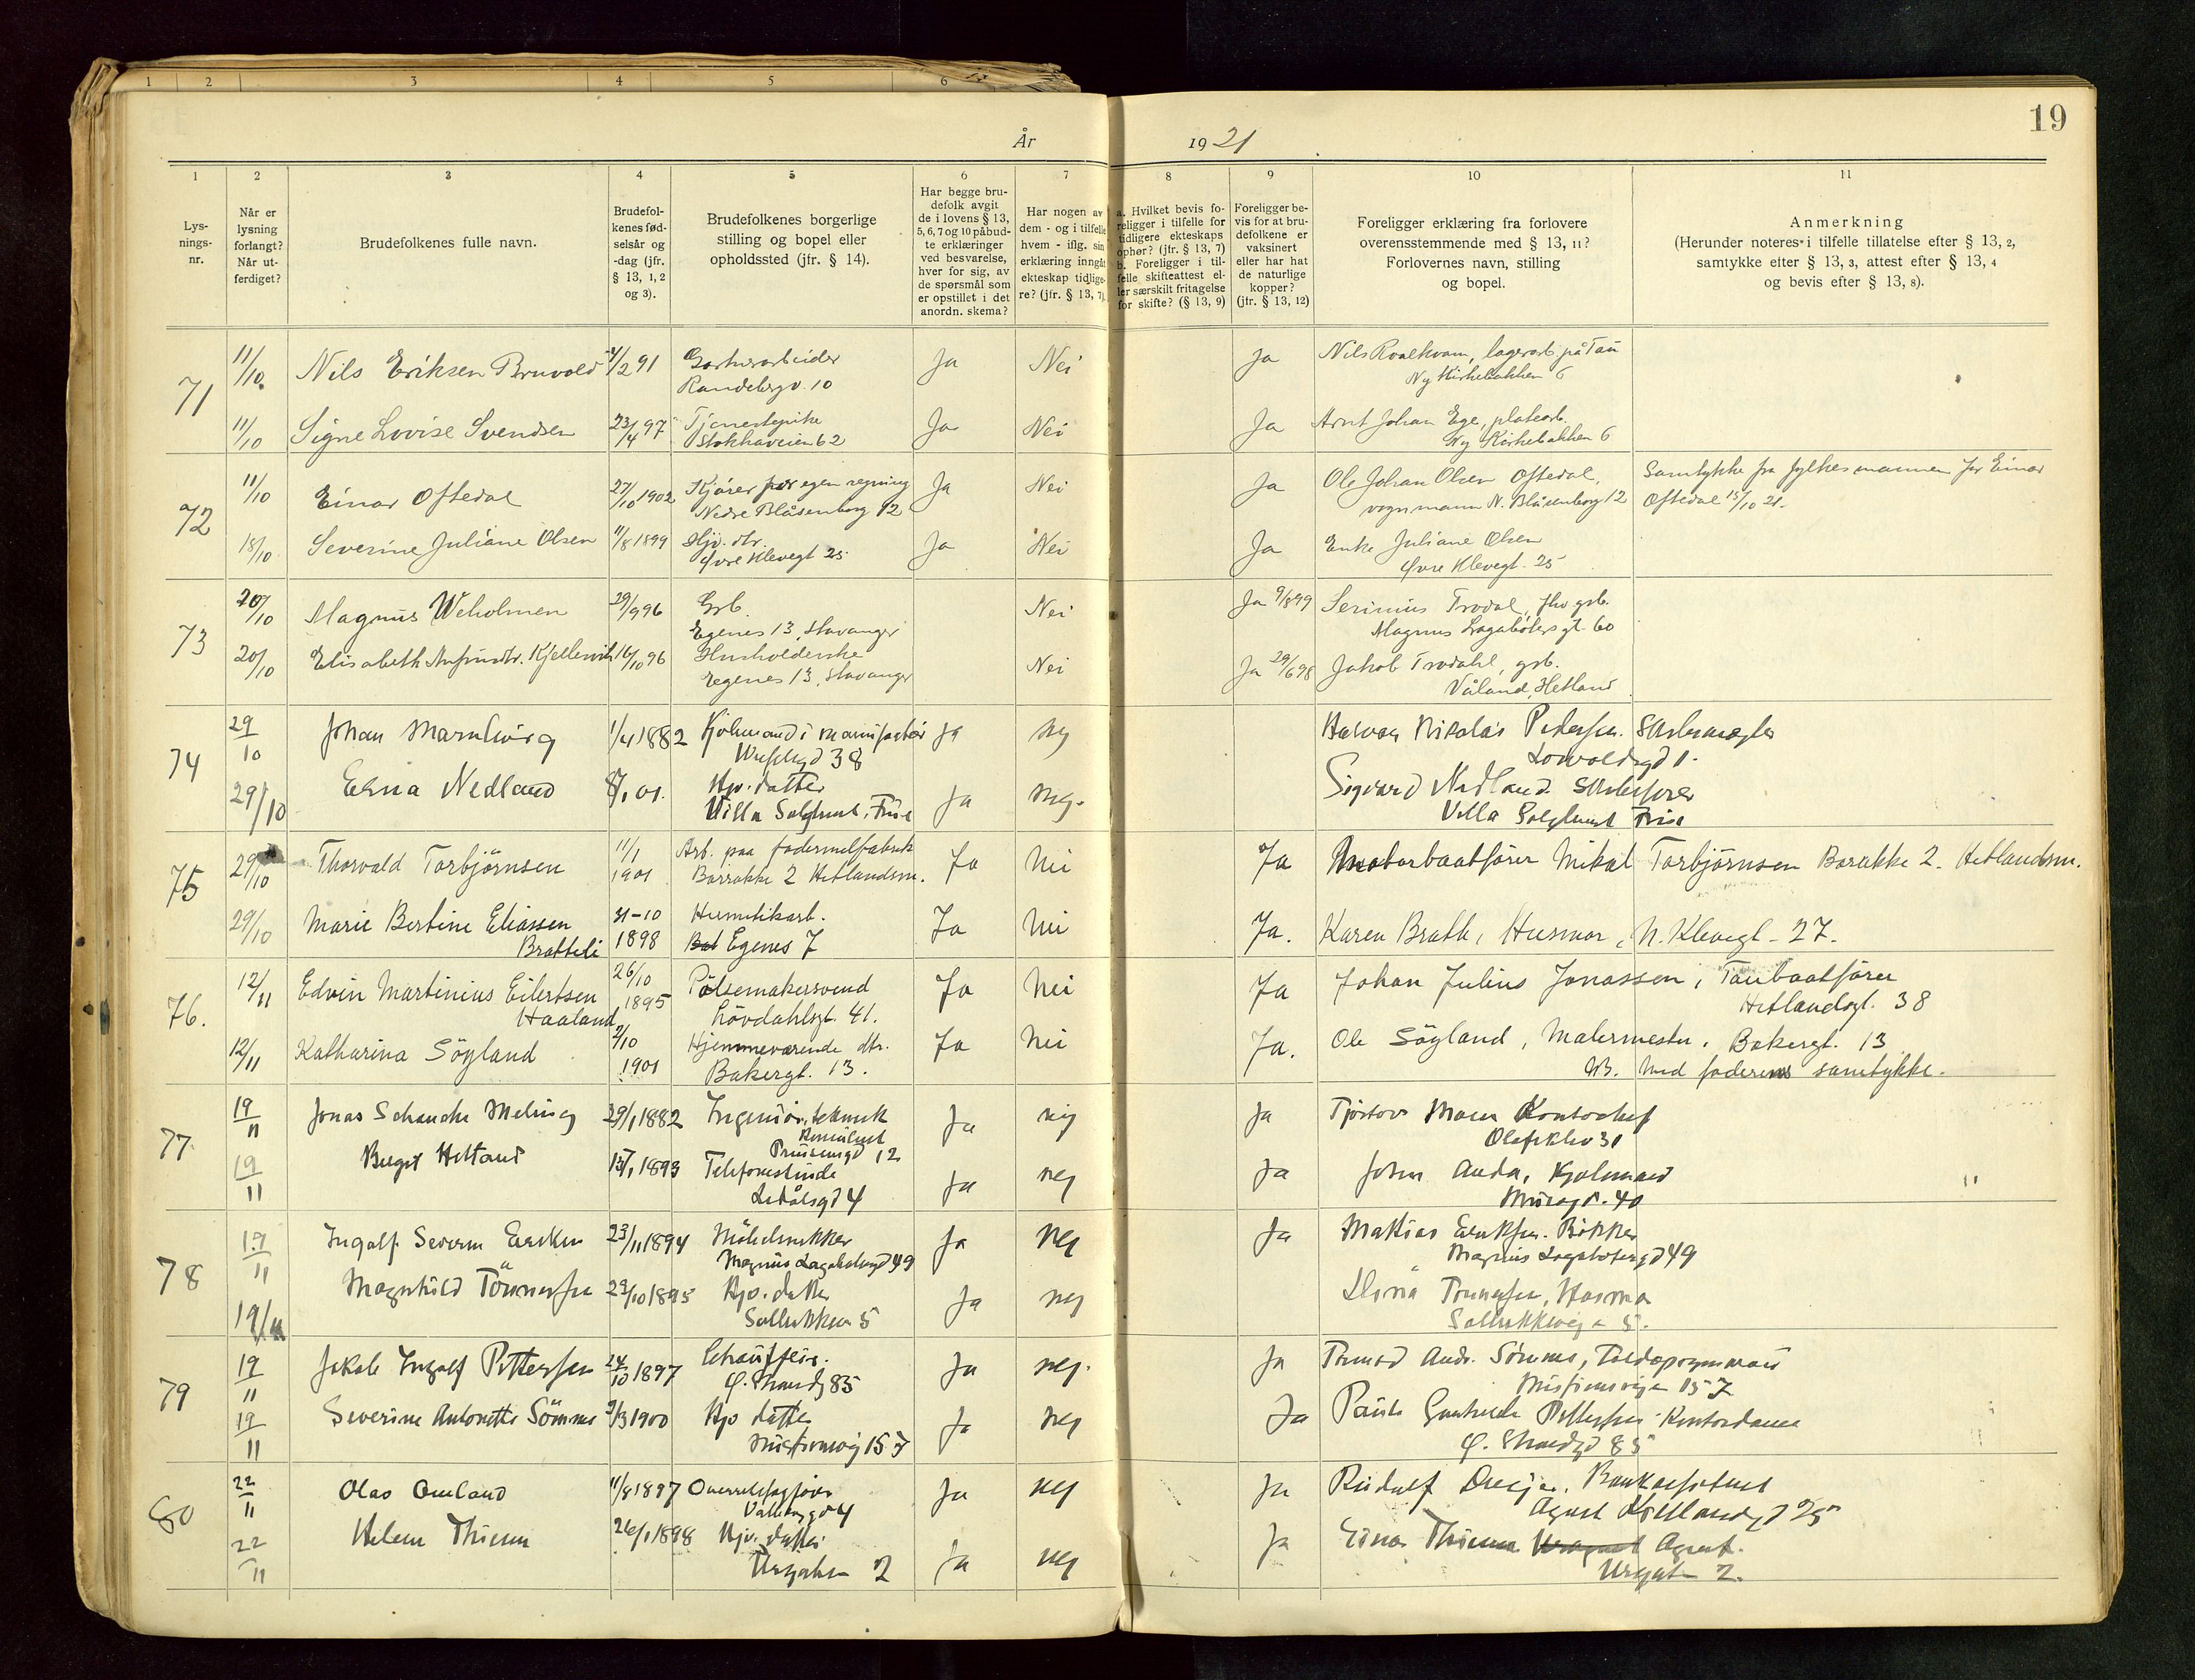 1 2 3 4 5 6
19
År 1921
1 2 3 4 5 6 7 8 9 10 11
Lys-
nings-
nr.
Når er
lysning
forlangt?
Når ut-
ferdiget?
Brudefolkenes fulle navn.
Brudefol-
kenes fød-
selsår og
-dag (jfr.
§ 13, 1, 2
og 3).
Brudefolkenes borgerlige
stilling og bopel eller
opholdssted (jfr. § 14).
Har begge bru-
defolk avgit
de i lovens § 13,
5, 6, 7 og 10 påbud-
te erklæringer
ved besvarelse,
hver for sig, av
de spørsmål som
er opstillet i det
anordn. skema?
Har nogen av
dem - og i tilfelle
hvem - iflg. sin
erklæring inngåt
ekteskap tidlige-
re? (jfr. § 13, 7).
a. Hvilket bevis fo-
religger i tilfelle for
tidligere ekteskaps
ophør? (jfr. § 13, 7)
b. Foreligger i til-
felle skifteattest el-
ler særskilt fritagelse
for skifte? (§ 13, 9)
Foreligger be-
vis for at bru-
defolkene er
vaksinert
eller har hat
de naturlige
kopper?
(jfr. § 13, 12)
Foreligger erklæring fra forlovere
overensstemmende med § 13, 11?
Forlovernes navn, stilling
og bopel.
Anmerkning
(Herunder noteres i tilfelle tillatelse efter § 13, 2,
samtykke efter § 13, 3, attest efter § 13, 4
og bevis efter § 13, 8).
71 11/10. Nils Eriksen Bruvold 4/2 91 Ja Nei Ja Nils Roalkvam, lagerarb. på Tau
Randebergv. 10 Ny Kirkebakken 6
11/10 Signe Lovise Svendsen 23/4 97 Tjenestepike Ja Nei Ja Arnt Johan Ege, platearb.
Stokkaveien 62 Ny Kirkebakken 6
72 11/10 Einar Oftedal 27/10 1902 Kjører for egen regning Ja Nei Ja Ole Johan Olsen Oftedal, Samtykke fra fylkesmannen for Einar
Nedre Blåsenborg 12 vognmann N. Blåsenborg 12 Oftedal 15/10 21.
18/10. Severine Juliane Olsen 11/8 1899 Hjv. dtr. Ja Nei Ja Enke Juliane Olsen
Øvre Klevegt 25 Øvre Klevegt. 25
73 20/10 Magnus Weholmen 29/9 96 Grb. Nei Ja 9/8 99 Serinius Trodal, fhv grb.
Egenes 13, Stavanger Magnus Lagabøters gt. 60
20/10 Elisabeth Kjellevik 16/10 96 Husholderske Nei Ja 29/6 98 Jakob Trodahl, grb.
Egenes 13, Stavanger Våland, Hetland
74 29/10 Johan 1/4 1882 Kjøbmand i Ja nej Halvor Nikolai Pedersen.
38 1.
29/10 Edna Nedland 8/1 01. Hjv. datter Ja nej. Sigvard Nedland
Villa Villa
75 29/10 Thorvald Torbjörnsen 11/1 Arb. paa fodermelfabrik Ja Nei Ja Motorbaatförer Mikal Torbjörnsen Barakke 2. Hetlandsm.
1901 Barrakke 2 Hetlandsm.
29/10 Marie Bertine Eliassen 31-10 Hermetikarb. Ja Nei Ja. Karen Bratli, Husmor, N. Klevegt - 27.
Bratteli 1898 Egenes 7
76. 12/11 Edvin Martinius Eilertsen 26/10 Pölsemakersvend Ja Nei Ja Johan Julius Jonassen, Taubaatförer
Haaland 1895 Lövdahlsgt. 41. Hetlandsgt. 38
12/11 Katharina Söyland 9/10 Hjemmeværende dtr. Ja Nei Ja. Ole Söyland, Malermester, Bakergt. 13
1901 Bakergt. 13. NB. Med faderens samtykke.
77 19/11 Jonas Schancke Meling 29/1 1882 Ingeniør, teknisk Ja nej Ja Kontorchef
konsulent Olafsklev 31
12
19/11 Birgit Hetland 15/1 1893 Telefonistinde Ja nej Ja John Auda, Kjøbmand
Ledålsgd 4 40
78 19/11 Ingolf Severin Eriksen 23/11 1894 Möbelsnekker Ja Nej Ja Mathias Eriksen. Bøkker
Magnus Lagabøtersgd 49 Magnus Lagabøtersgd 49
19/11 Magnhild Tönnessen 29/10 1895 Hjv. datter Ja nej Tönnessen, Husmor
5 5.
79 19/11 Jakob Ingolf Pettersen 24/10 1897 Chauffeur. Ja nej. Ja Tönnes Andr. Sömme,
Ø. Strandgd 85 Misjonsveien 157
19/11 Severine Antonette Sömme 9/3 1900 Hjv datter Ja nej Ja Paula Gunhilde Pettersen Kontordame
Misjonsveig 157 Ø. Strandgd 85
80 22/11 Olav Omland 11/8 1897 Ja nej Ja Rudolf Bankassistent
4 25
22/11 Helene Thiesen 26/1 1898 Hjv. datter Ja nej Ja Einar Thiesen Agent.
Urgaten 2 Urgaten 2.